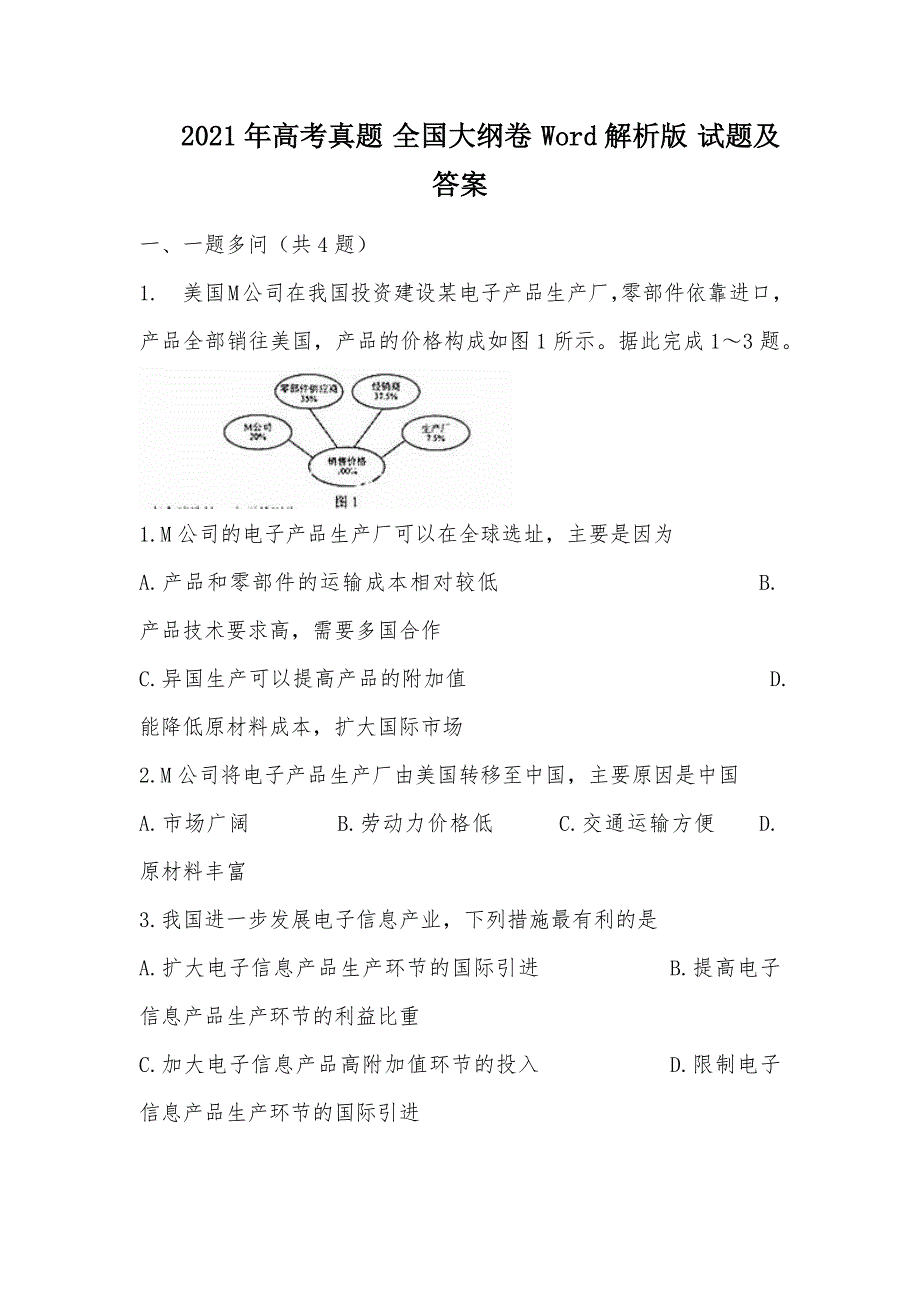 2021年高考真题 全国大纲卷 Word解析版 试题及
答案
一、一题多问（共4题）
1. 美国M公司在我国投资建设某电子产品生产厂,零部件依靠进口，
产品全部销往美国，产品的价格构成如图1所示。据此完成1～3题。
零部件供应商
35%
经销商
37.5%
M公司
20%
生产厂
7.5%
销售价格
图1
1.M公司的电子产品生产厂可以在全球选址，主要是因为
A.产品和零部件的运输成本相对较低 B.
产品技术要求高，需要多国合作
C.异国生产可以提高产品的附加值 D.
能降低原材料成本，扩大国际市场
2.M公司将电子产品生产厂由美国转移至中国，主要原因是中国
A.市场广阔 B.劳动力价格低 C.交通运输方便 D.
原材料丰富
3.我国进一步发展电子信息产业，下列措施最有利的是
A.扩大电子信息产品生产环节的国际引进 B.提高电子
信息产品生产环节的利益比重
C.加大电子信息产品高附加值环节的投入 D.限制电子
信息产品生产环节的国际引进